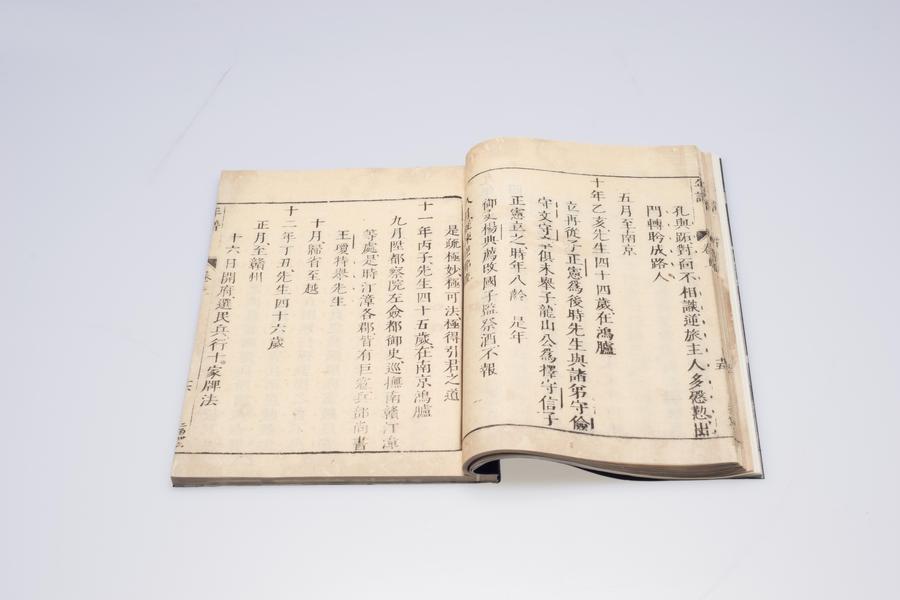 孔與跖對面不相識逆旅主人多慇懃出
門轉盻成路人
五月至南京
十年乙亥先生四十四歲在鴻臚
立再從子正憲爲後時先生與諸弟守儉
守文守章俱未舉子龍山公爲擇守信子
正憲立之時年八齡 是年
御史楊典薦改國子監祭酒不報
是疏極妙極可法極得引君之道
十一年丙子先生四十五歲在南京鴻臚
九月陞都察院左僉都御史巡撫南贛汀漳
等處是時汀漳各郡皆有巨寇兵部尚書
王瓊特舉先生
十月歸省至越
十二年丁丑先生四十六歲
正月至贛州
十六日開府選民兵行十家牌法